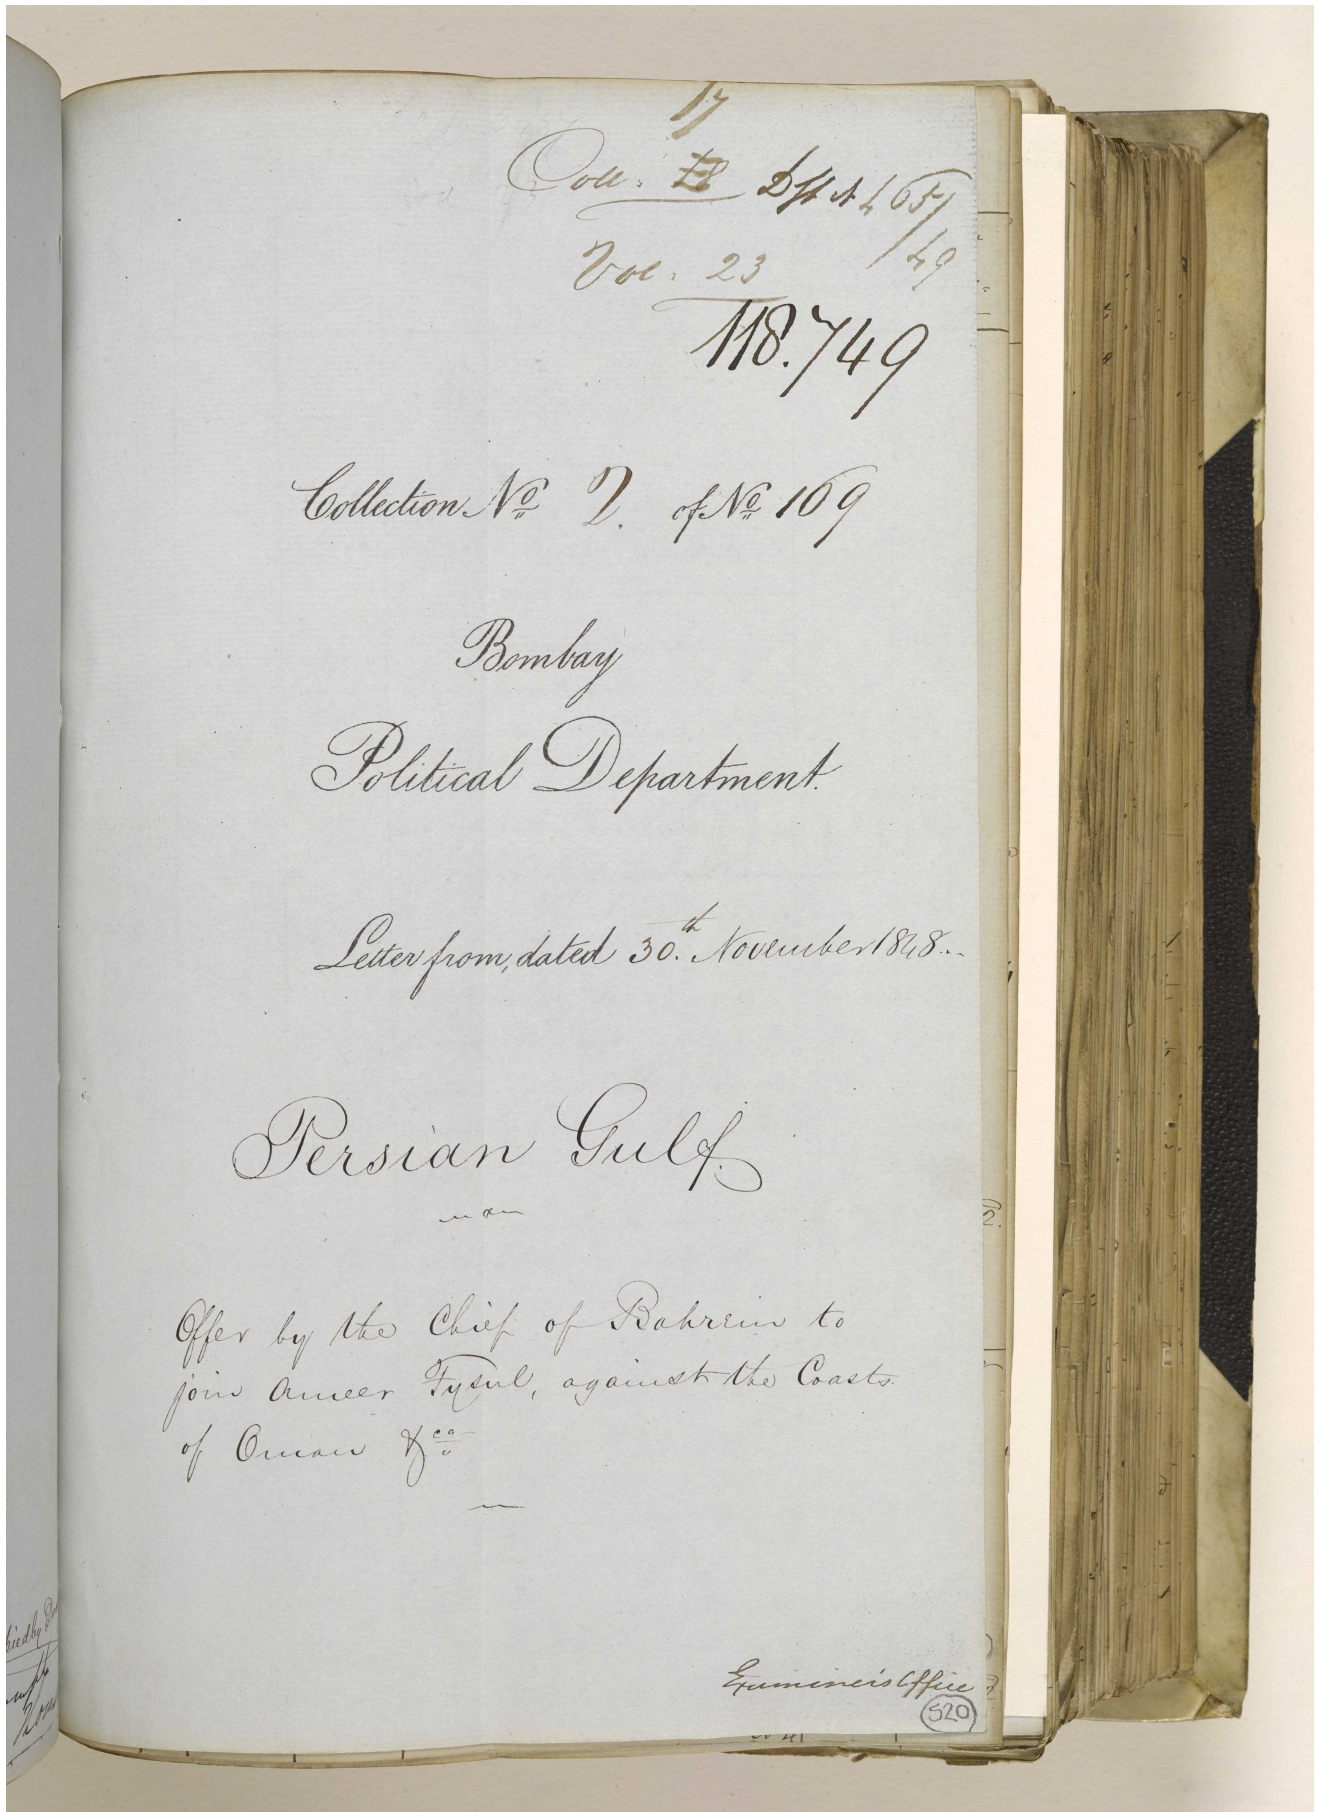 17
Coll:
Dft N 657
Vol: 23 / 49
118.749
Collection No 2. of No 169
Bombay
Political Department.
Letter from, dated 30.th November 1848..
Persian Gulf.
Offer by the Chief of Bahrein to
join Ameer Fysul, against the Coasts
of Oman &ca
Examiner's Office
520